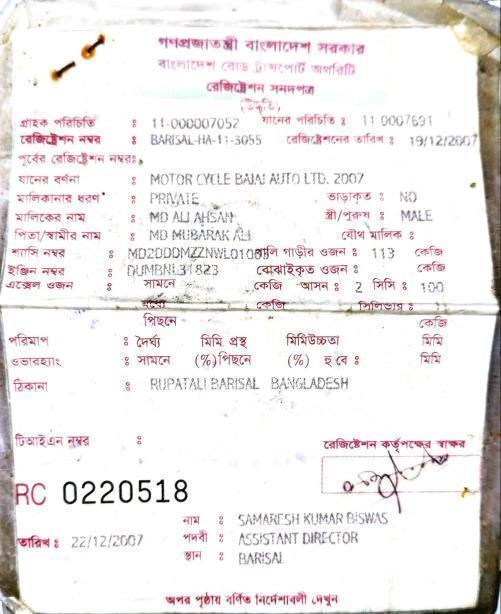 গণপ্রজাতন্ত্রী বাংলাদেশ সরকার
বাংলাদেশ রোড ট্রান্সপোর্ট অথরিটি
রেজিষ্ট্রেশন সনদপত্র
গ্রাহক পরিচিতি : 11-000007052 যানের পরিচিতি : 11-0007691
রেজিষ্ট্রেশন নম্বর : BARISAL-HA-11-3055 রেজিষ্ট্রেশনের তারিখ : 19/12/2007
পূর্বের রেজিষ্ট্রেশন নম্বর:
যানের বর্ণনা : MOTOR CYCLE BAJAJ AUTO LTD. 2007
মালিকানার ধরণ : PRIVATE ভাড়াকৃত : NO
মালিকের নাম : MD ALI AHSAN স্ত্রী/পুরুষ : MALE
পিতা/স্বামীর নাম : MD MUBARAK ALI যৌথ মালিক :
শ্যাসি নম্বর : খালি গাড়ীর ওজন : 113 কেজি
ইঞ্জিন নম্বর : DUMBNL31823 বোঝাইকৃত ওজন : কেজি
এক্সেল ওজন : সামনে কেজি আসন : 2 সিসি : 100
মধ্যে কেজি সিলিন্ডার :
পিছনে কেজি
পরিমাপ : দৈর্ঘ্য মিমি প্রস্থ মিমিউচ্চতা মিমি
ওভারহ্যাং : সামনে (%) পিছনে (%) হু বে : মিমি
ঠিকানা : RUPATALI BARISAL BANGLADESH
টিআইএন নম্বর :
রেজিষ্টেশন কর্তৃপক্ষের স্বাক্ষর
RC 0220518
নাম : SAMARESH KUMAR BISWAS
তারিখ : 22/12/2007 পদবী : ASSISTANT DIRECTOR
স্থান : BARISAL
অপর পৃষ্ঠায় বর্ণিত নির্দেশাবলী দেখুন